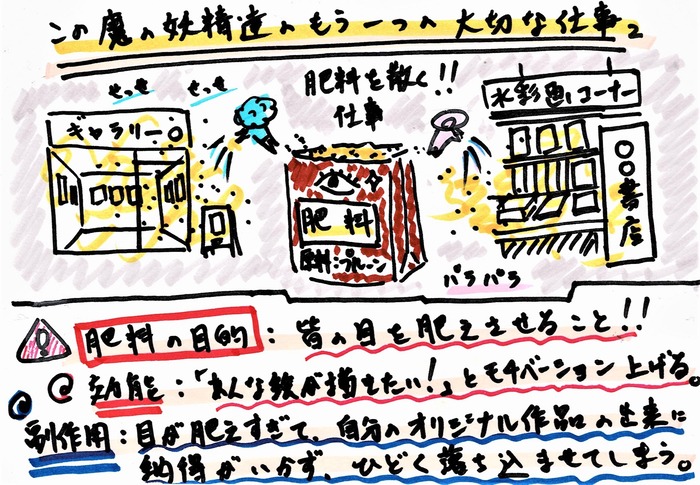 この魔の妖精達のもう一つの大切な仕事2
せっせ せっせ
肥料を散く!!
仕事
ギャラリー〇
水彩画コーナー
〇〇書店
肥料
原料:プルーン
パラパラ
肥料の目的:皆の目を肥えさせること!!
効能:「こんな絵が描きたい!」とモチベーション上げる。
副作用:目が肥えすぎて、自分のオリジナル作品の出来に
納得がいかず、ひどく落ち込ませてしまう。